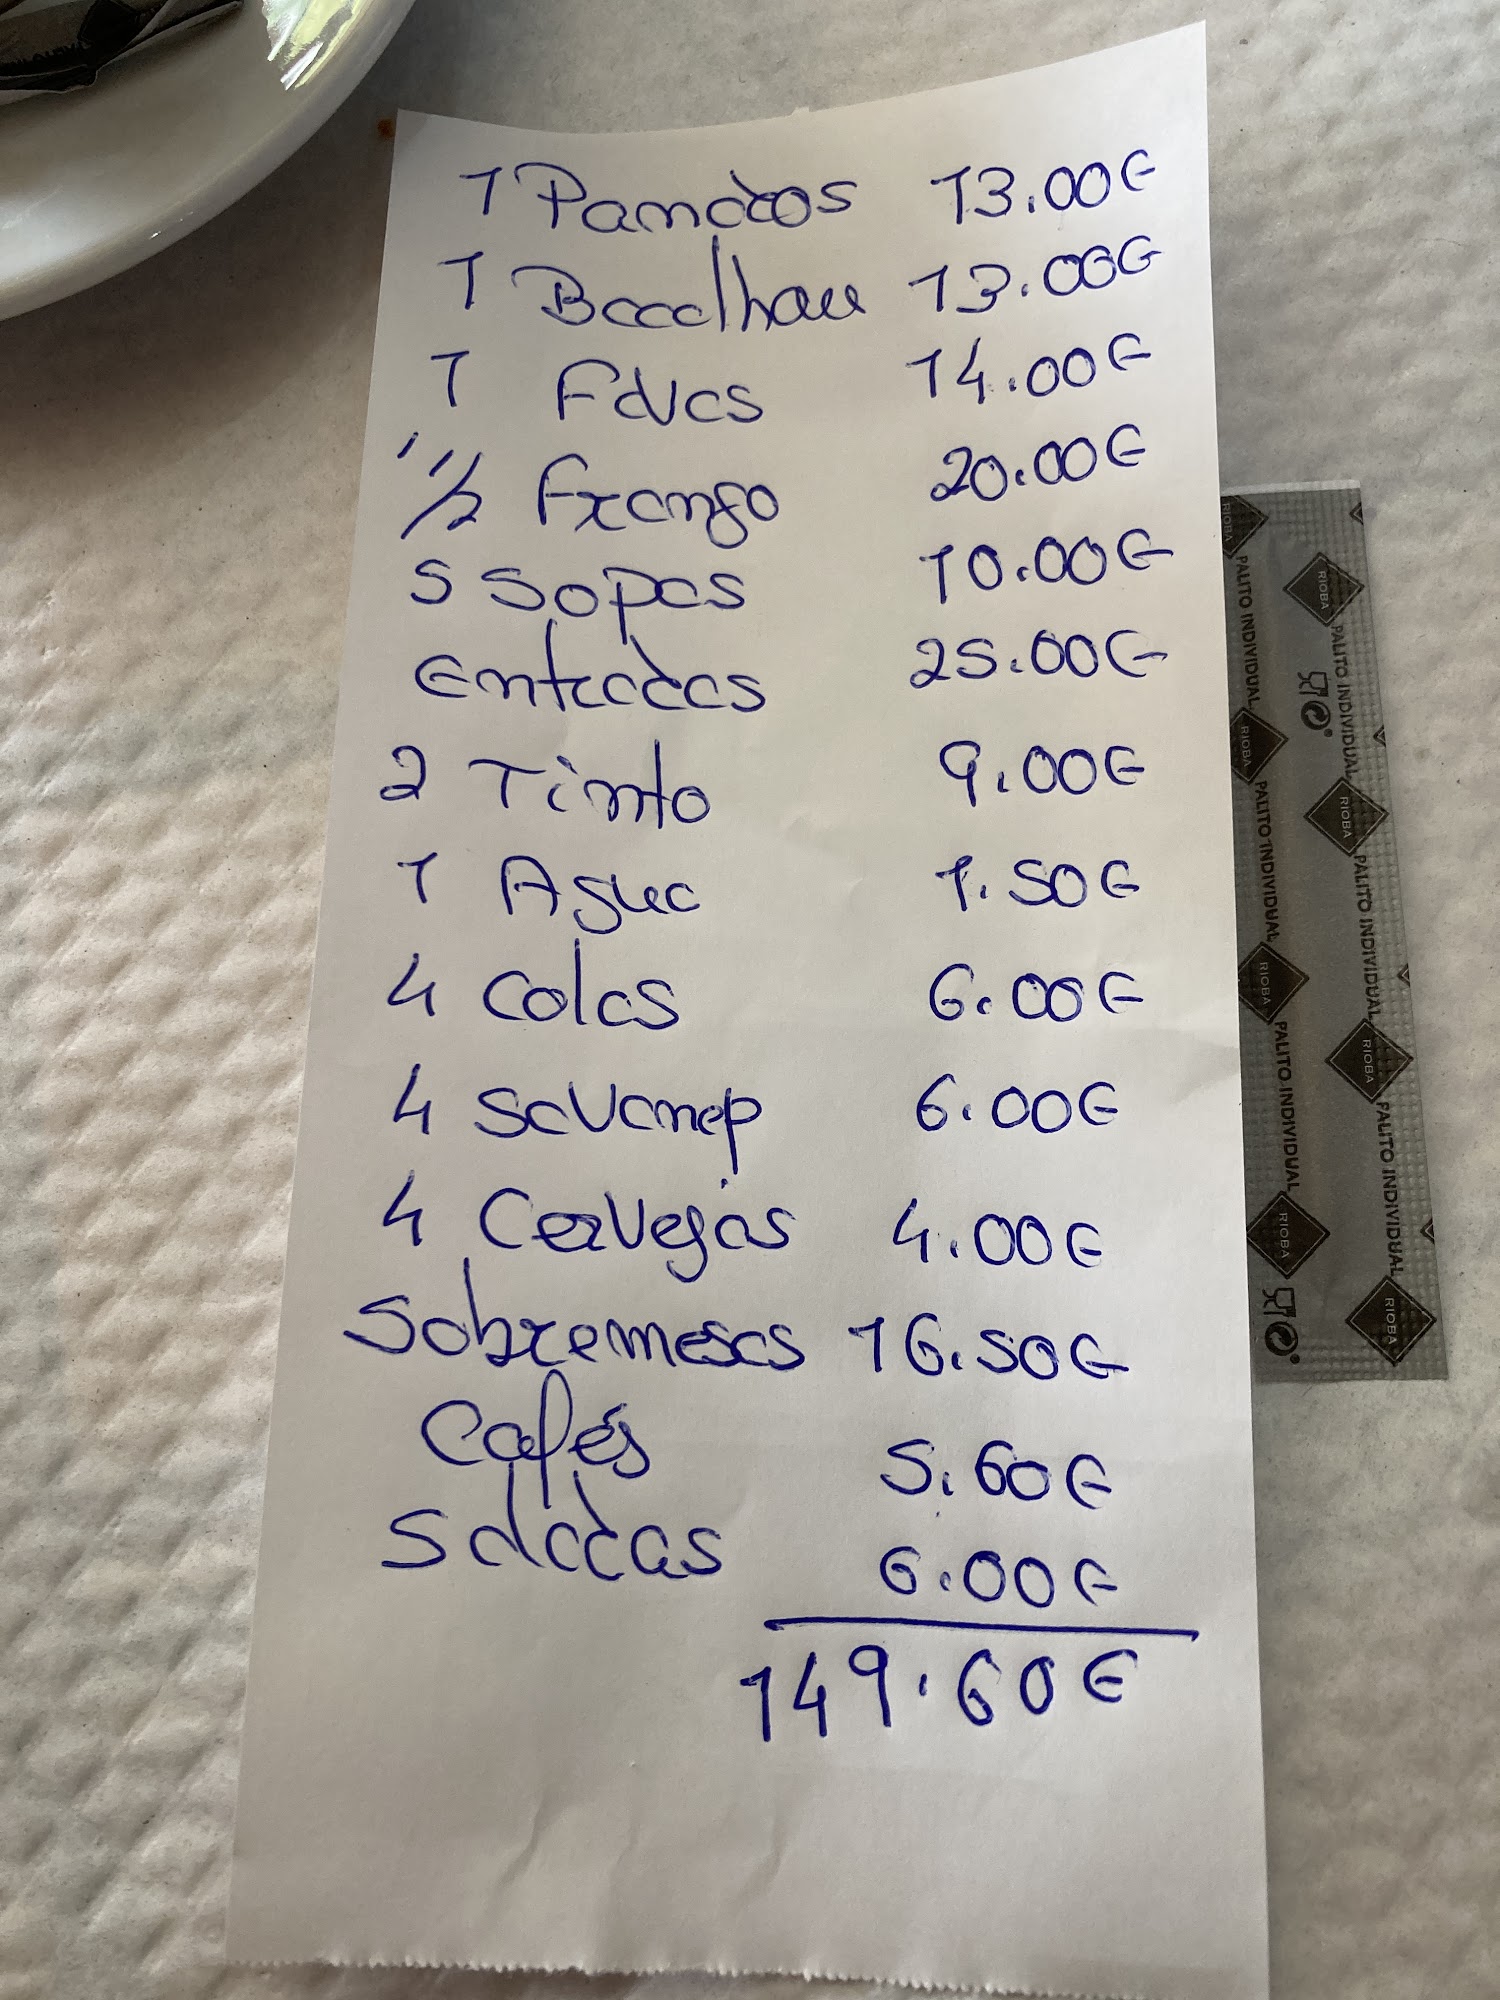 1 Panados 13.00€
1 Bacalhau 13.00€
1 Favas 14.00€
1 1/2 Frango 20.00€
5 Sopas 10.00€
Entradas 25.00€
2 Tinto 9.00€
1 Agua 1.50€
4 Colas 6.00€
4 Savanep 6.00€
4 Cervejas 4.00€
Sobremesas 16.50€
Cafés 5.60€
Saladas 6.00€
149.60€
RIOBA PALITO INDIVIDUAL RIOBA PALITO INDIVIDUAL RIOBA PALITO INDIVIDUAL RIOBA
RIOBA PALITO INDIVIDUAL RIOBA PALITO INDIVIDUAL RIOBA PALITO INDIVIDUAL RIOBA